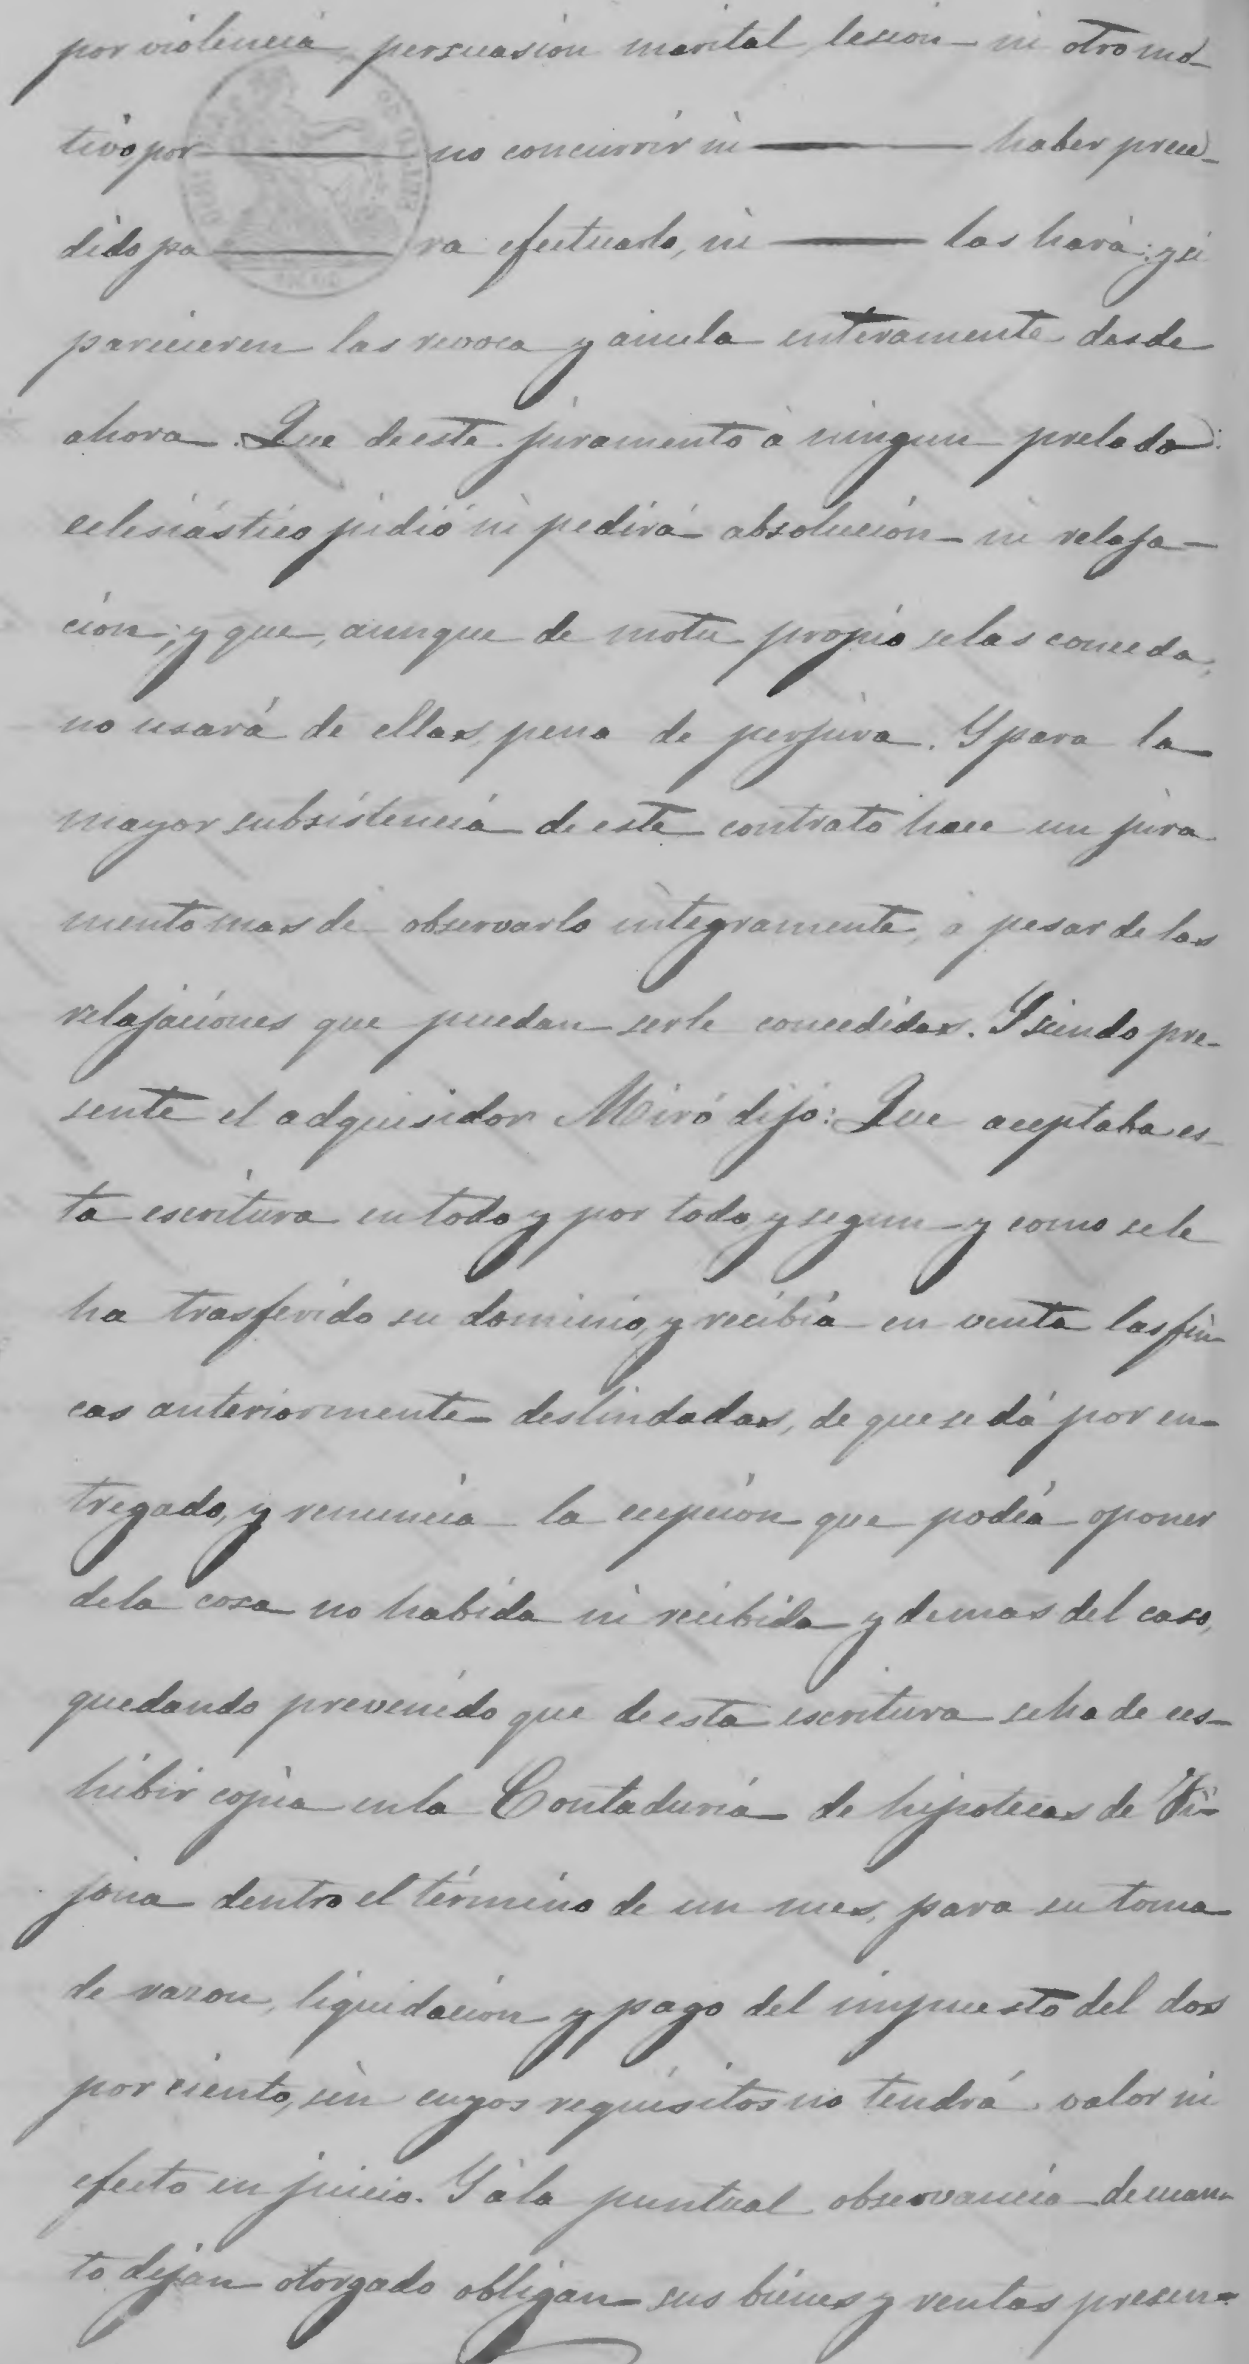 por violencia, persuasion marital, lesion ni otro mo-
tivo por no concurrir ni haber prece-
dido pa ra efectuarlo, ni las hará: y si
parecieren las revoca y anula enteramente desde
ahora. Que de este juramento á ningun prelado
eclesiástico pidió ni pedirá absolucion ni relaja-
cion; y que, aunque de motu propio se las conceda,
no usará de ellas, pena de perjura. Y para la
mayor subsistencia de este contrato hace un jura
mento mas de observarlo integramente, á pesar de las
relajaciones que puedan serle concedidas. Y siendo pre-
sente el adquisidor Miró dijo: Que aceptaba es-
ta escritura en todo y por todo, y segun y como se le
ha trasferido su dominio, y recibia en venta las fin
cas anteriormente deslindadas, de que se dá por en-
tregado, y renuncia la ecepcion que podia oponer
de la cosa no habida ni recibida y demas del caso,
quedando prevenido que de esta escritura se ha de ecs-
hibir copia en la Contaduria de hipotecas de Ji-
jona dentro el término de un mes, para su toma
de razon, liquidacion y pago del impuesto del dos
por ciento, sin cuyos requisitos no tendrá valor ni
efecto en juicio. Y á la puntual observancia de cuan
to dejan otorgado obligan sus bienes y rentas presen-